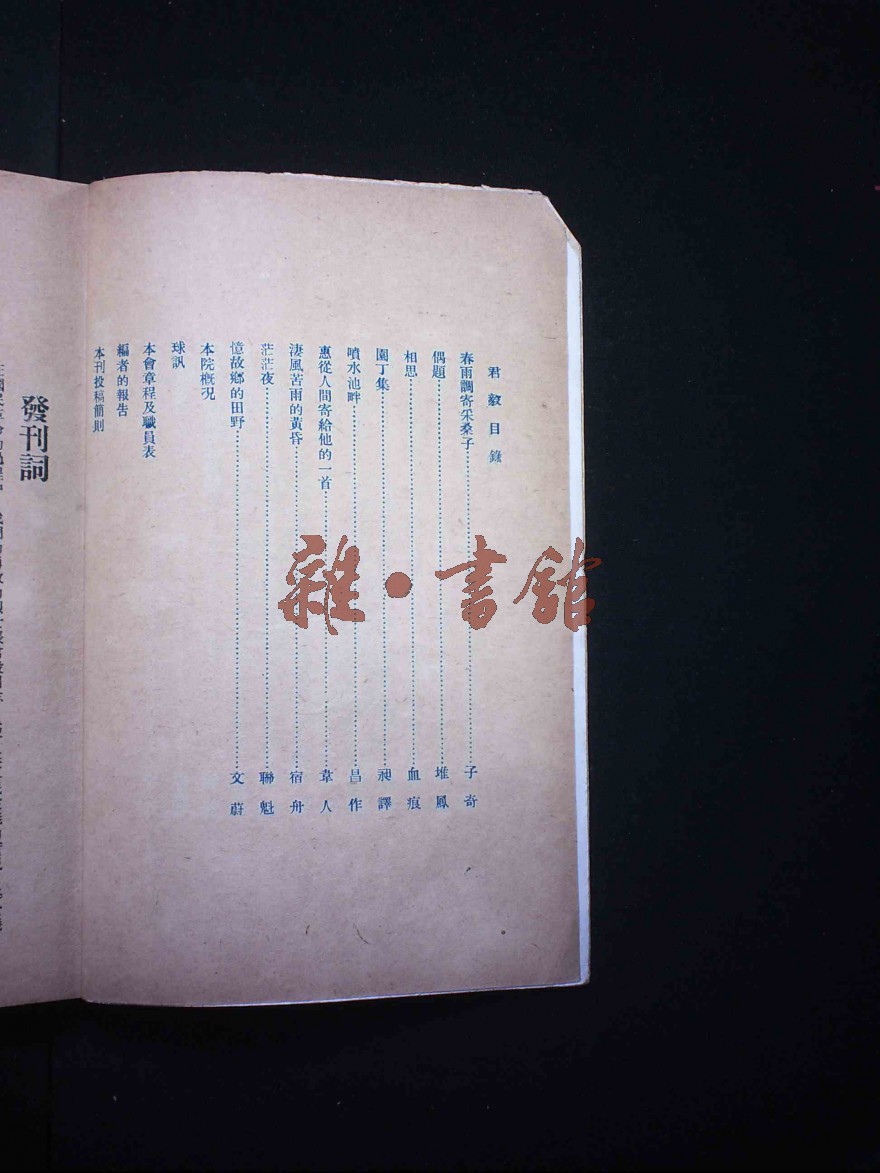 君毅目錄
春雨調寄采桑子……子奇
偶題……堆鳳
相思……血痕
園丁集……昶譯
噴水池畔……昌作
惠從人間寄給他的一首……韋人
淒風苦雨的黃昏……宿舟
茫茫夜……聯魁
憶故鄉的田野……文蔚
本院概況
球訊
本會章程及職員表
編者的報告
本刊投稿簡則
發刊詞
雜·書館